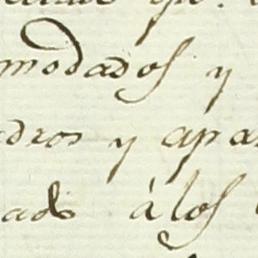 modados y
dros y apa
ado à los